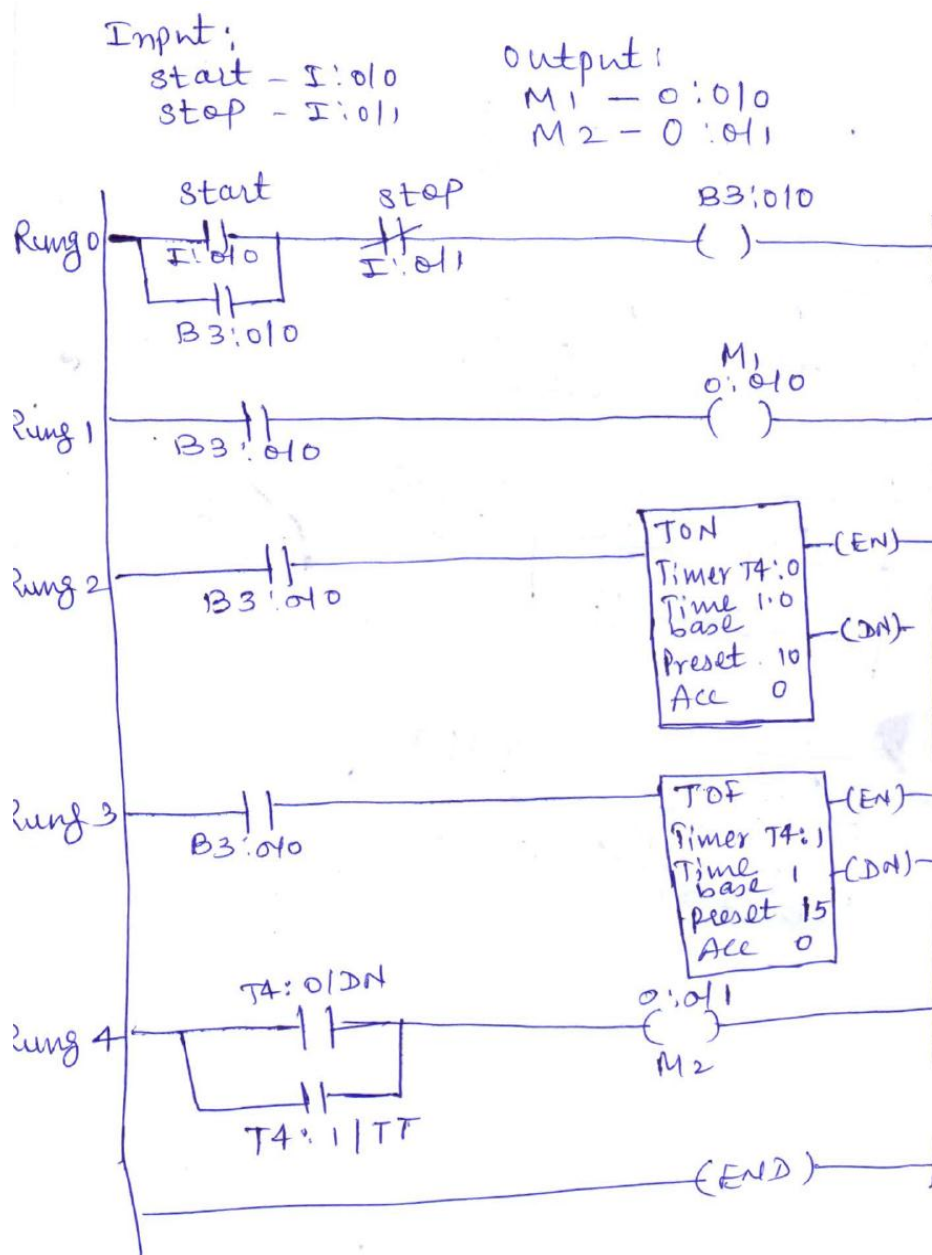 Input:
start - I:0/0
stop - I:0/1
Output:
M1 - O:0/0
M2 - O:0/1
Rung 0
start
I:0/0
stop
I:0/1
B3:0/0
( )
B3:0/0
Rung 1
B3:0/0
M1
O:0/0
( )
Rung 2
B3:0/0
TON
Timer T4:0
Time 1.0
base
Preset 10
Acc 0
(EN)
(DN)
Rung 3
B3:0/0
TOF
Timer T4:1
Time
base 1
preset 15
Acc 0
(EN)
(DN)
Rung 4
T4:0/DN
T4:1/TT
O:0/1
( )
M2
(END)